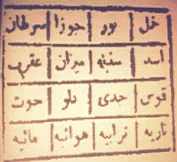 حمل ثور جوزا سرطان
اسد سنبله میزان عقرب
قوس جدی دلو حوت
ناریه ترابیه هوائیه مائیه